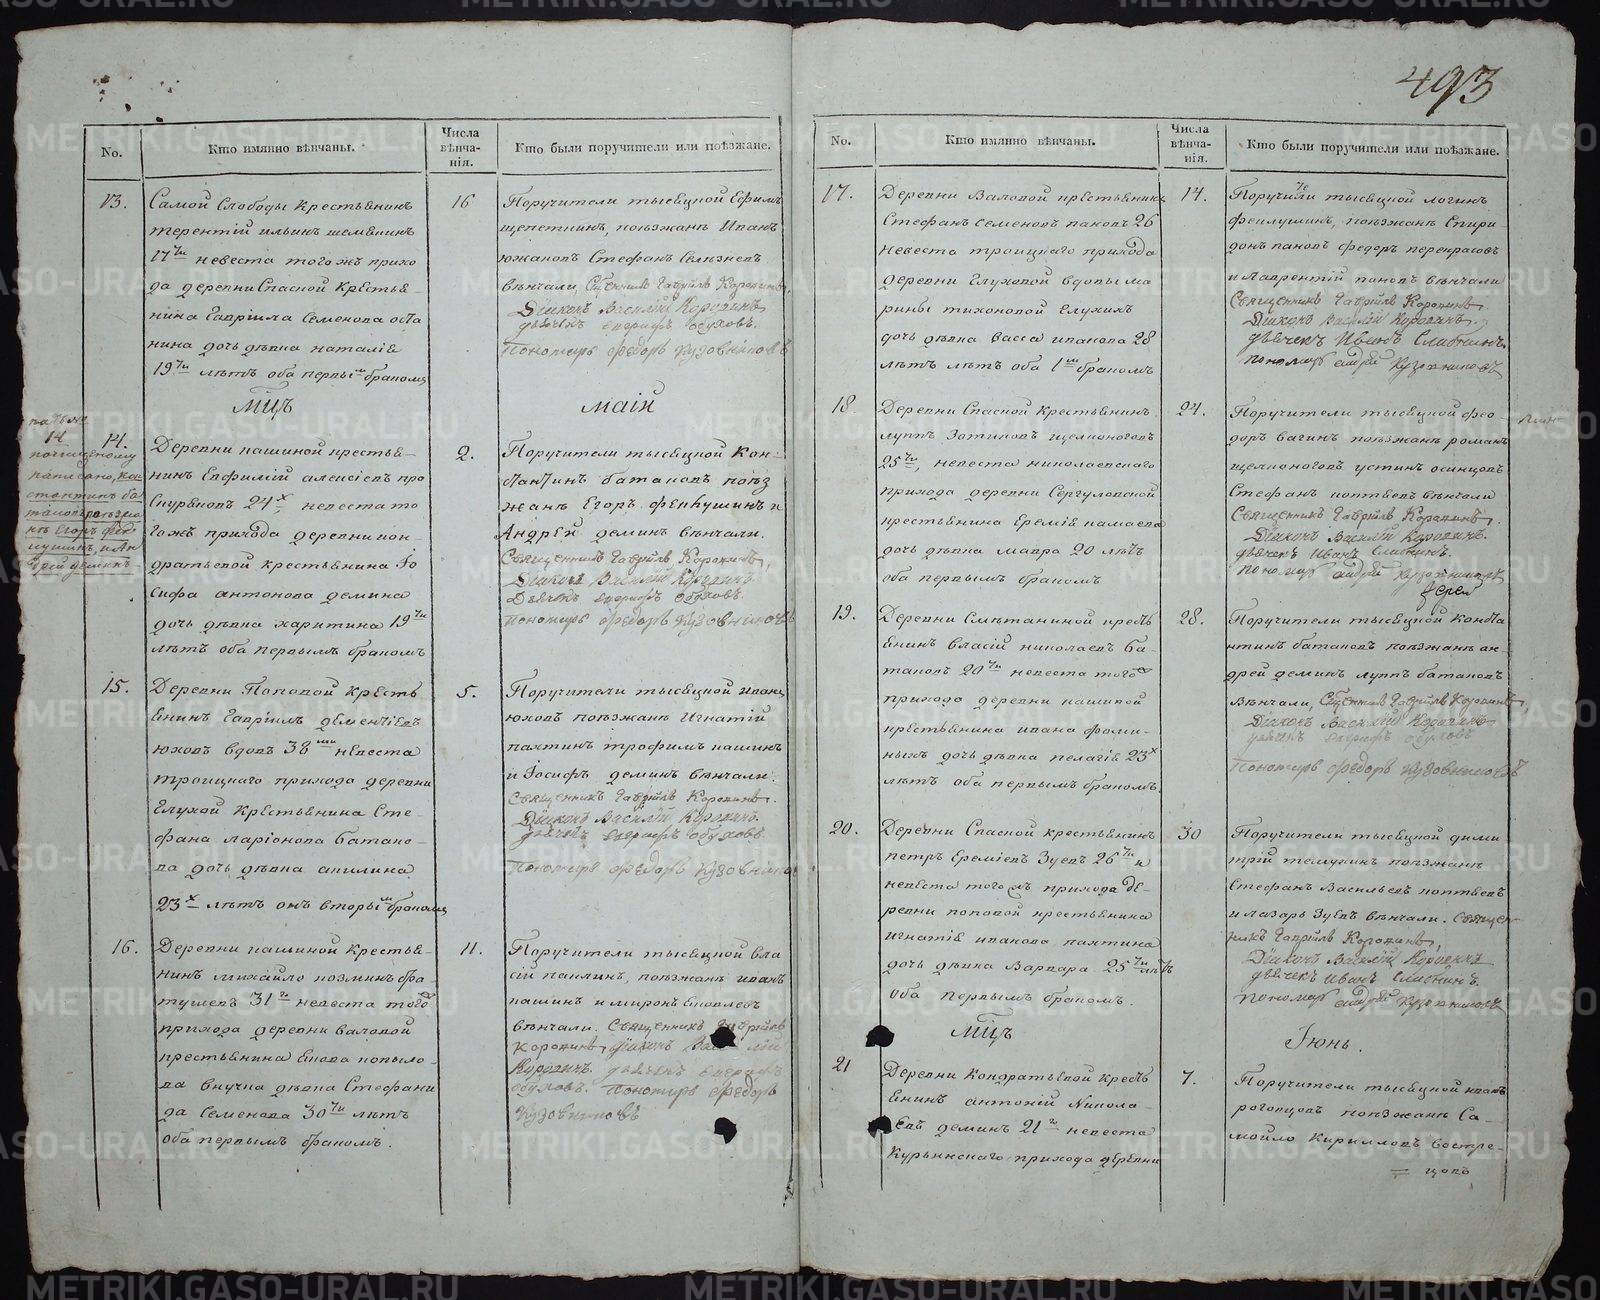 493
No.
Кто имянно вѣнчаны.
Числа вѣнча-
нія.
Кто были поручители или поѣзжане.
13.
Самой Слободы крестьянинъ
терентій ильинъ шемякинъ
17ти невеста тогожъ прихо
да деревни Спасской крестья-
нина Гавріила Семенова оста
нина дочь дѣвка наталія
19ти лѣтъ оба первымъ бракомъ
16
Поручители тысяцкой Ефимъ
щепеткинъ, поѣзжанъ Иванъ
южаковъ Стефанъ Селезневъ
вѣнчали, Сщенникъ Гавріилъ Коровинъ,
Діаконъ Василій Коровинъ
дьячекъ евграфъ обуховъ.
Пономарь Федоръ Кузовниковъ
Мцъ
маій
14.
Деревни пашиной крестья-
нинъ Евфимій алексіевъ про
скуряковъ 24х невеста то
гожъ прихода деревни кон-
дратьевой крестьянина Іо
сифа антонова демина
дочь дѣвка харитина 19ти
лѣтъ оба первымъ бракомъ
2.
Поручители тысяцкой Кон-
стантинъ батаковъ поѣз
жанъ Егоръ феклушинъ и
Андрей деминъ вѣнчали.
Священникъ Гавріилъ Коровинъ,
Діаконъ Василій Коровинъ
Дьячекъ евграфъ обуховъ.
Пономарь Федоръ Кузовниковъ
14
почищеному
написано, кон
стантинъ ба
таковъ, поѣзжа
нъ Егоръ фек
лушинъ, и Ан
дрей деминъ
15.
Деревни Поповой кресть
янинъ Гавріилъ дементіевъ
юховъ вдовъ 38ми невеста
троицкаго прихода деревни
Глухой крестьянина Сте-
фана ларіонова батако-
ва дочь дѣвка акилина
23х лѣтъ онъ вторымъ бракомъ
5.
Поручители тысяцкой иванъ
юховъ поѣзжанъ Игнатій
пахтинъ трофимъ пашинъ
и Іосифъ деминъ вѣнчали.
Священникъ Гавріилъ Коровинъ.
Діаконъ Василій Коровинъ.
дьячекъ евграфъ обуховъ.
Пономарь Федоръ Кузовниковъ
16.
Деревни пашиной крестья-
нинъ михайло козминъ фа
тушевъ 31го невеста того
прихода деревни валовой
крестьянина Якова копыло-
ва внучка дѣвка Стефани
да Семенова 30ти лѣтъ
оба первымъ бракомъ.
11.
Поручители тысяцкой вла
сій павлинъ, поѣзжанъ иванъ
пашинъ и миронъ Яковлевъ
вѣнчали. Священникъ Гавріилъ
Коровинъ, діаконъ Василій
Коровинъ. дьячекъ евграфъ
обуховъ. Пономарь Федоръ
Кузовниковъ
No.
Кто имянно вѣнчаны.
Числа вѣнча-
нія.
Кто были поручители или поѣзжане.
17.
Деревни Валовой крестьянинъ
Стефанъ Семеновъ паковъ 26
невеста троицкаго прихода
деревни Глуховой вдовы ма
рины тихоновой Глухихъ
дочь дѣвка васса иванова 28
лѣтъ лѣтъ оба 1мъ бракомъ
14.
Поручители тысяцкой логинъ
феклушинъ, поѣзжанъ Спири-
донъ паковъ федеръ перекрасовъ
и Лаврентій поповъ вѣнчали
Священникъ Гавріилъ Коровинъ
Діаконъ Василій Коровинъ.
дьячекъ Иванъ Славнинъ.
пономарь андрей Кузовниковъ
18.
Деревни Спасской крестьянинъ
луппъ Зотиковъ щелконоговъ
25ти, невеста николаевскаго
прихода деревни Сергуловской
крестьянина Еремія камаева
дочь дѣвка мавра 20 лѣтъ
оба первымъ бракомъ
24.
Поручители тысяцкой фео-
доръ вагинъ поѣзжанъ романъ
щелконоговъ устинъ осинцовъ
Стефанъ коптяевъ вѣнчали
Священникъ Гавріилъ Коровинъ.
Діаконъ Василій Коровинъ.
дьячекъ Иванъ Славнинъ.
пономарь андрей Кузовниковъ
19.
Деревни Сметаниной кресть
янинъ власій николаевъ ба-
таковъ 20ти невеста того
прихода деревни пашиной
крестьянина ивана фоми-
ныхъ дочь дѣвка пелагія 23х
лѣтъ оба первымъ бракомъ
28.
Поручители тысяцкой конста
нтинъ батаковъ поѣзжанъ ан-
дрей деминъ луппъ батаковъ
вѣнчали, Сщенникъ Гавріилъ Коровинъ,
Діаконъ Василій Коровинъ
дьячекъ евграфъ обуховъ
Пономарь Федоръ Кузовниковъ
20.
Деревни Спасской крестьянинъ
петръ Ереміевъ Зуевъ 26ти и
невеста тогожъ прихода де-
ревни поповой крестьянина
игнатія иванова пахтина
дочь дѣвка Варвара 25ти лѣтъ
оба первымъ бракомъ.
30
Поручители тысяцкой дими
трій телухинъ поѣзжанъ
Стефанъ Васильевъ коптяевъ
и лазарь Зуевъ вѣнчали. Священ
никъ Гавріилъ Коровинъ,
Діаконъ Василій Коровинъ
дьячекъ Иванъ Славнинъ.
пономарь андрей Кузовниковъ
Мцъ
Іюнь.
21
Деревни Кондратьевой кресть
янинъ антоній Никола-
евъ деминъ 21го невеста
Курьинскаго прихода деревни
7.
Поручители тысяцкой иванъ
роговцовъ поѣзжанъ Са-
мойло Кирилловъ востре-
цовъ
METRIKI.GASO-URAL.RU